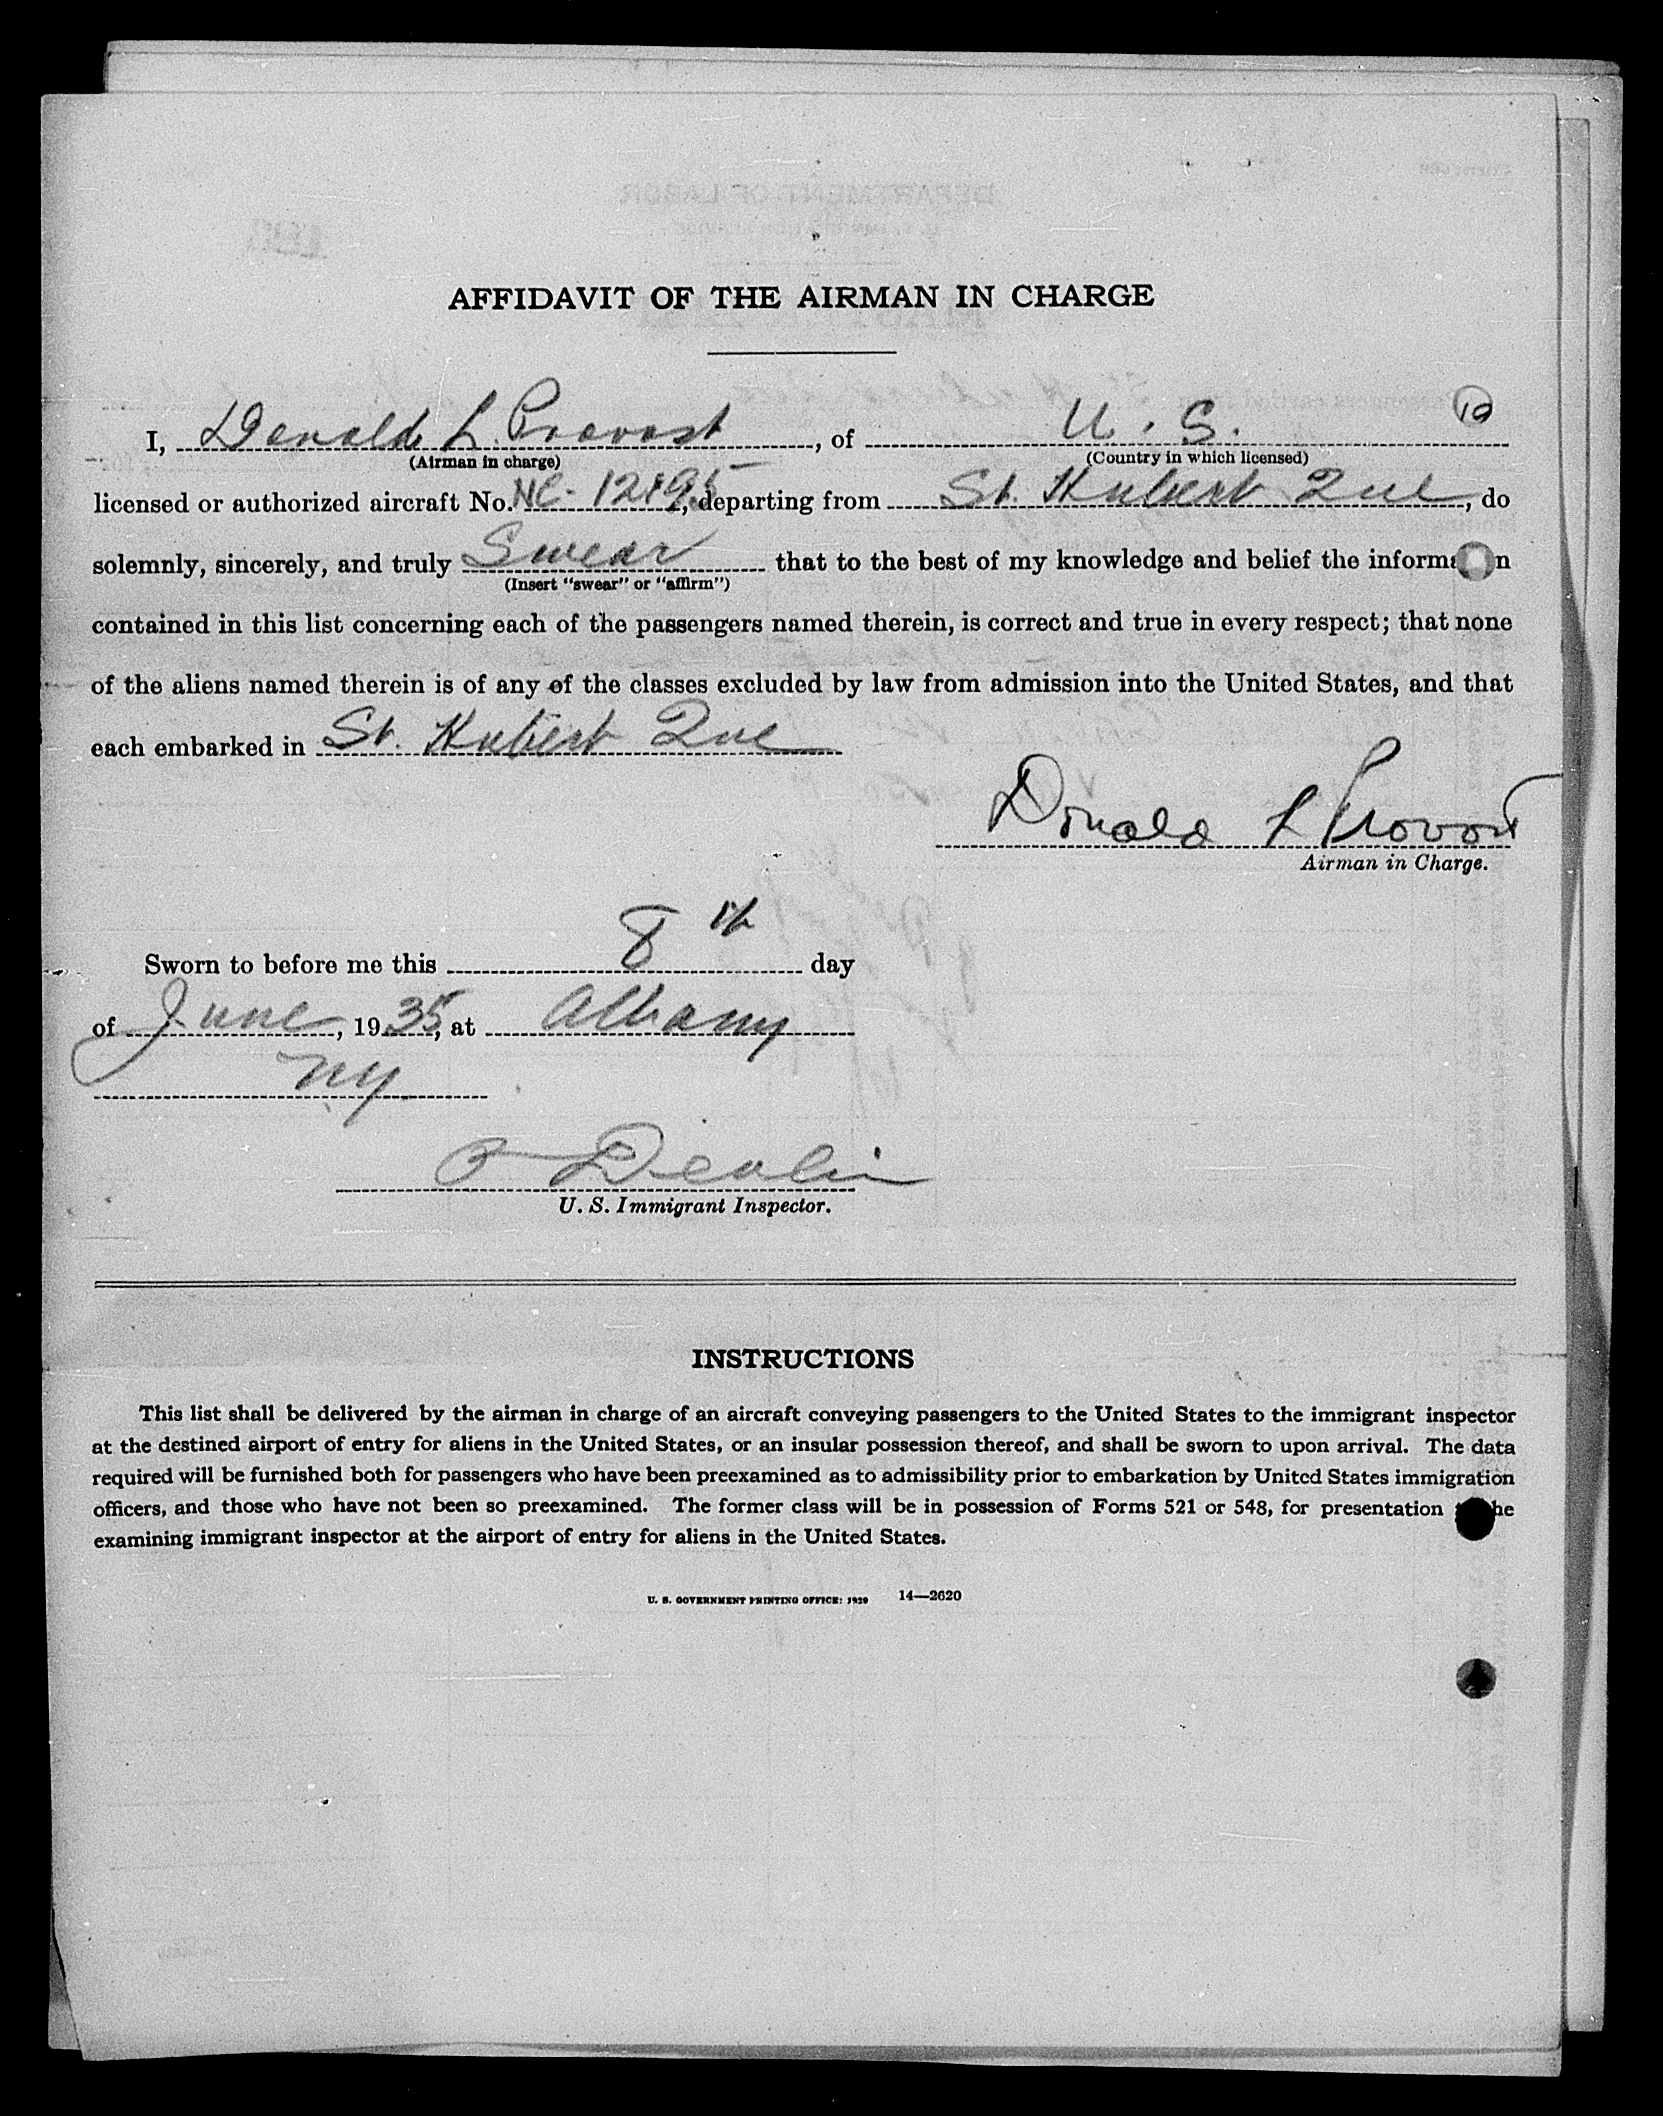 AFFIDAVIT OF THE AIRMAN IN CHARGE
I, Donald L. Provost, of U. S. 10
(Airman in charge) (Country in which licensed)
licensed or authorized aircraft No. NC-12195, departing from St. Hubert Que, do
solemnly, sincerely, and truly Swear that to the best of my knowledge and belief the informa n
(Insert "swear" or "affirm")
contained in this list concerning each of the passengers named therein, is correct and true in every respect; that none
of the aliens named therein is of any of the classes excluded by law from admission into the United States, and that
each embarked in St. Hubert Que
Donald L Provost
Airman in Charge.
Sworn to before me this 8th day
of June, 1935, at Albany
NY
Devlin
U. S. Immigrant Inspector.
INSTRUCTIONS
This list shall be delivered by the airman in charge of an aircraft conveying passengers to the United States to the immigrant inspector
at the destined airport of entry for aliens in the United States, or an insular possession thereof, and shall be sworn to upon arrival. The data
required will be furnished both for passengers who have been preexamined as to admissibility prior to embarkation by United States immigration
officers, and those who have not been so preexamined. The former class will be in possession of Forms 521 or 548, for presentation the
examining immigrant inspector at the airport of entry for aliens in the United States.
U. S. GOVERNMENT PRINTING OFFICE: 1929 14—2620